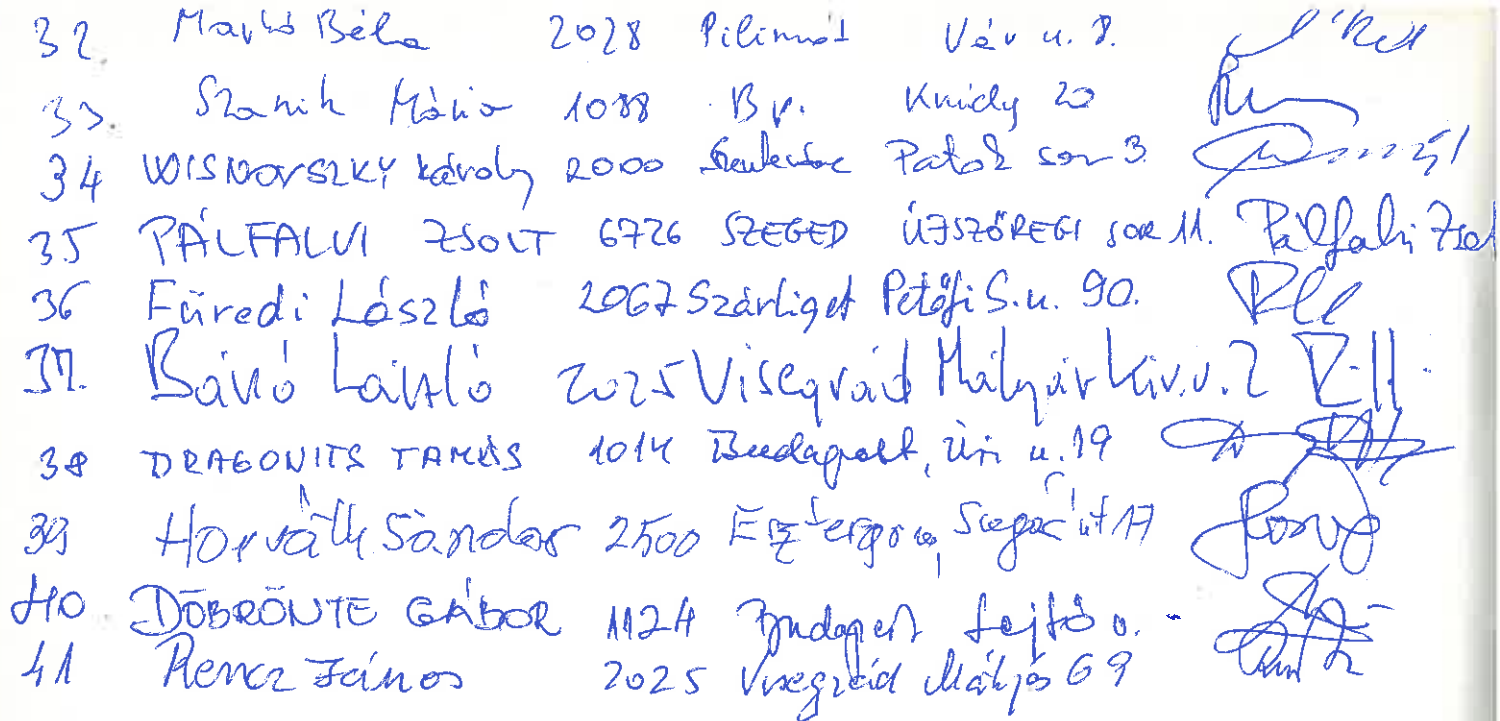 32 Markó Béla 2028 Pilismarót Vár u. 8.
33. Mária 1088 Bp. Krúdy 20
34 Károly 2000 Szentendre Patak sor 3.
35 PÁLFALVI ZSOLT 6726 SZEGED ÚJSZŐREGI SOR 11. Pálfalvi Zsolt
36 Füredi László 2067 Szárliget Petőfi S. u. 90.
37. László 2025 Visegrád Mátyás kir. u. 2
38 DRAGONITS TAMÁS 1014 Budapest, Úri u. 19
39 Horváth Sándor 2500 Esztergom, út 17
40 DÖBRÖNTE GÁBOR 1124 Budapest Lejtő u.
41 Rencz János 2025 Visegrád Mátyás 69